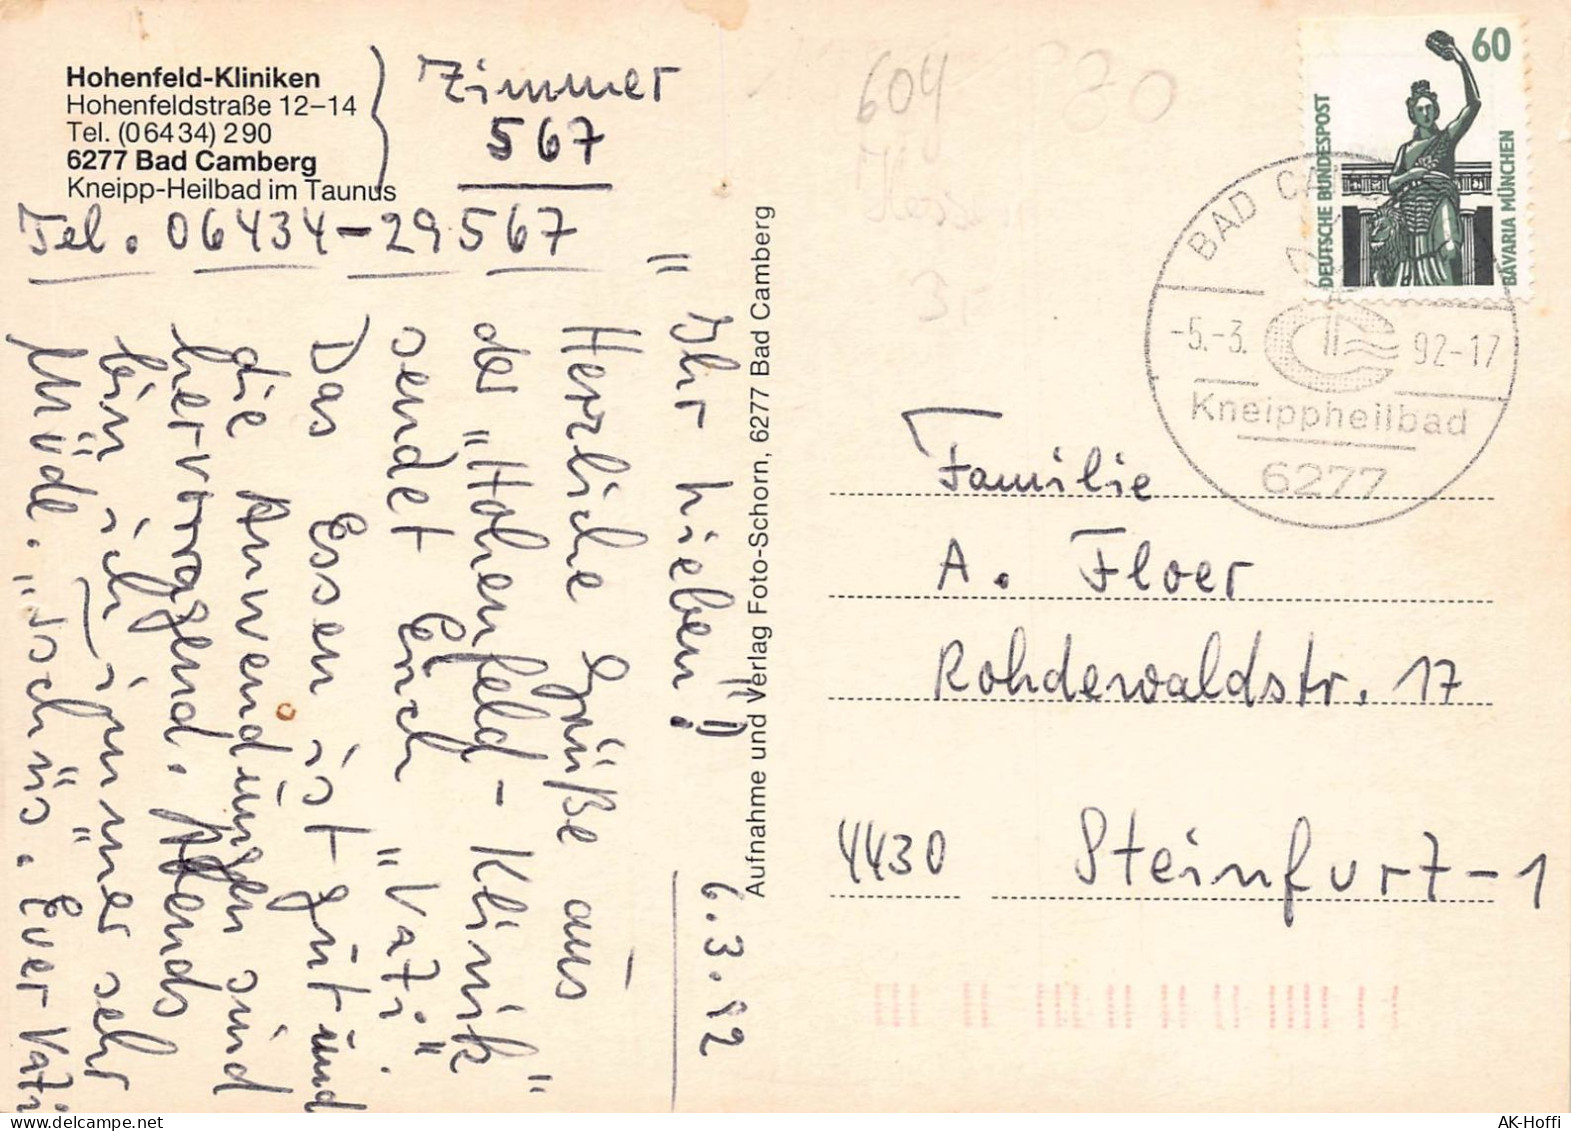 Hohenfeld-Kliniken
Hohenfeldstraße 12–14
Tel. (06434) 290
6277 Bad Camberg
Kneipp-Heilbad im Taunus
Zimmer
567
Tel. 06434-29567
6.3.92
"Ihr Lieben!"
Herzliche Grüße aus
der "Hohenfeld-Klinik"
sendet Euch "Vati"
Das Essen ist gut und
die Anwendungen sind
hervorragend. Abends
bin ich immer sehr
Müde. "Tschüs. Euer Vati
Aufnahme und Verlag Foto-Schorn, 6277 Bad Camberg
604
80
3,-
60
DEUTSCHE BUNDESPOST
BAVARIA MÜNCHEN
BAD CA
-5.-3.
92-17
Kneippheilbad
6277
Familie
A. Floer
Rohdewaldstr. 17
4430 Steinfurt-1
delcampe.net
AK-Hoffi